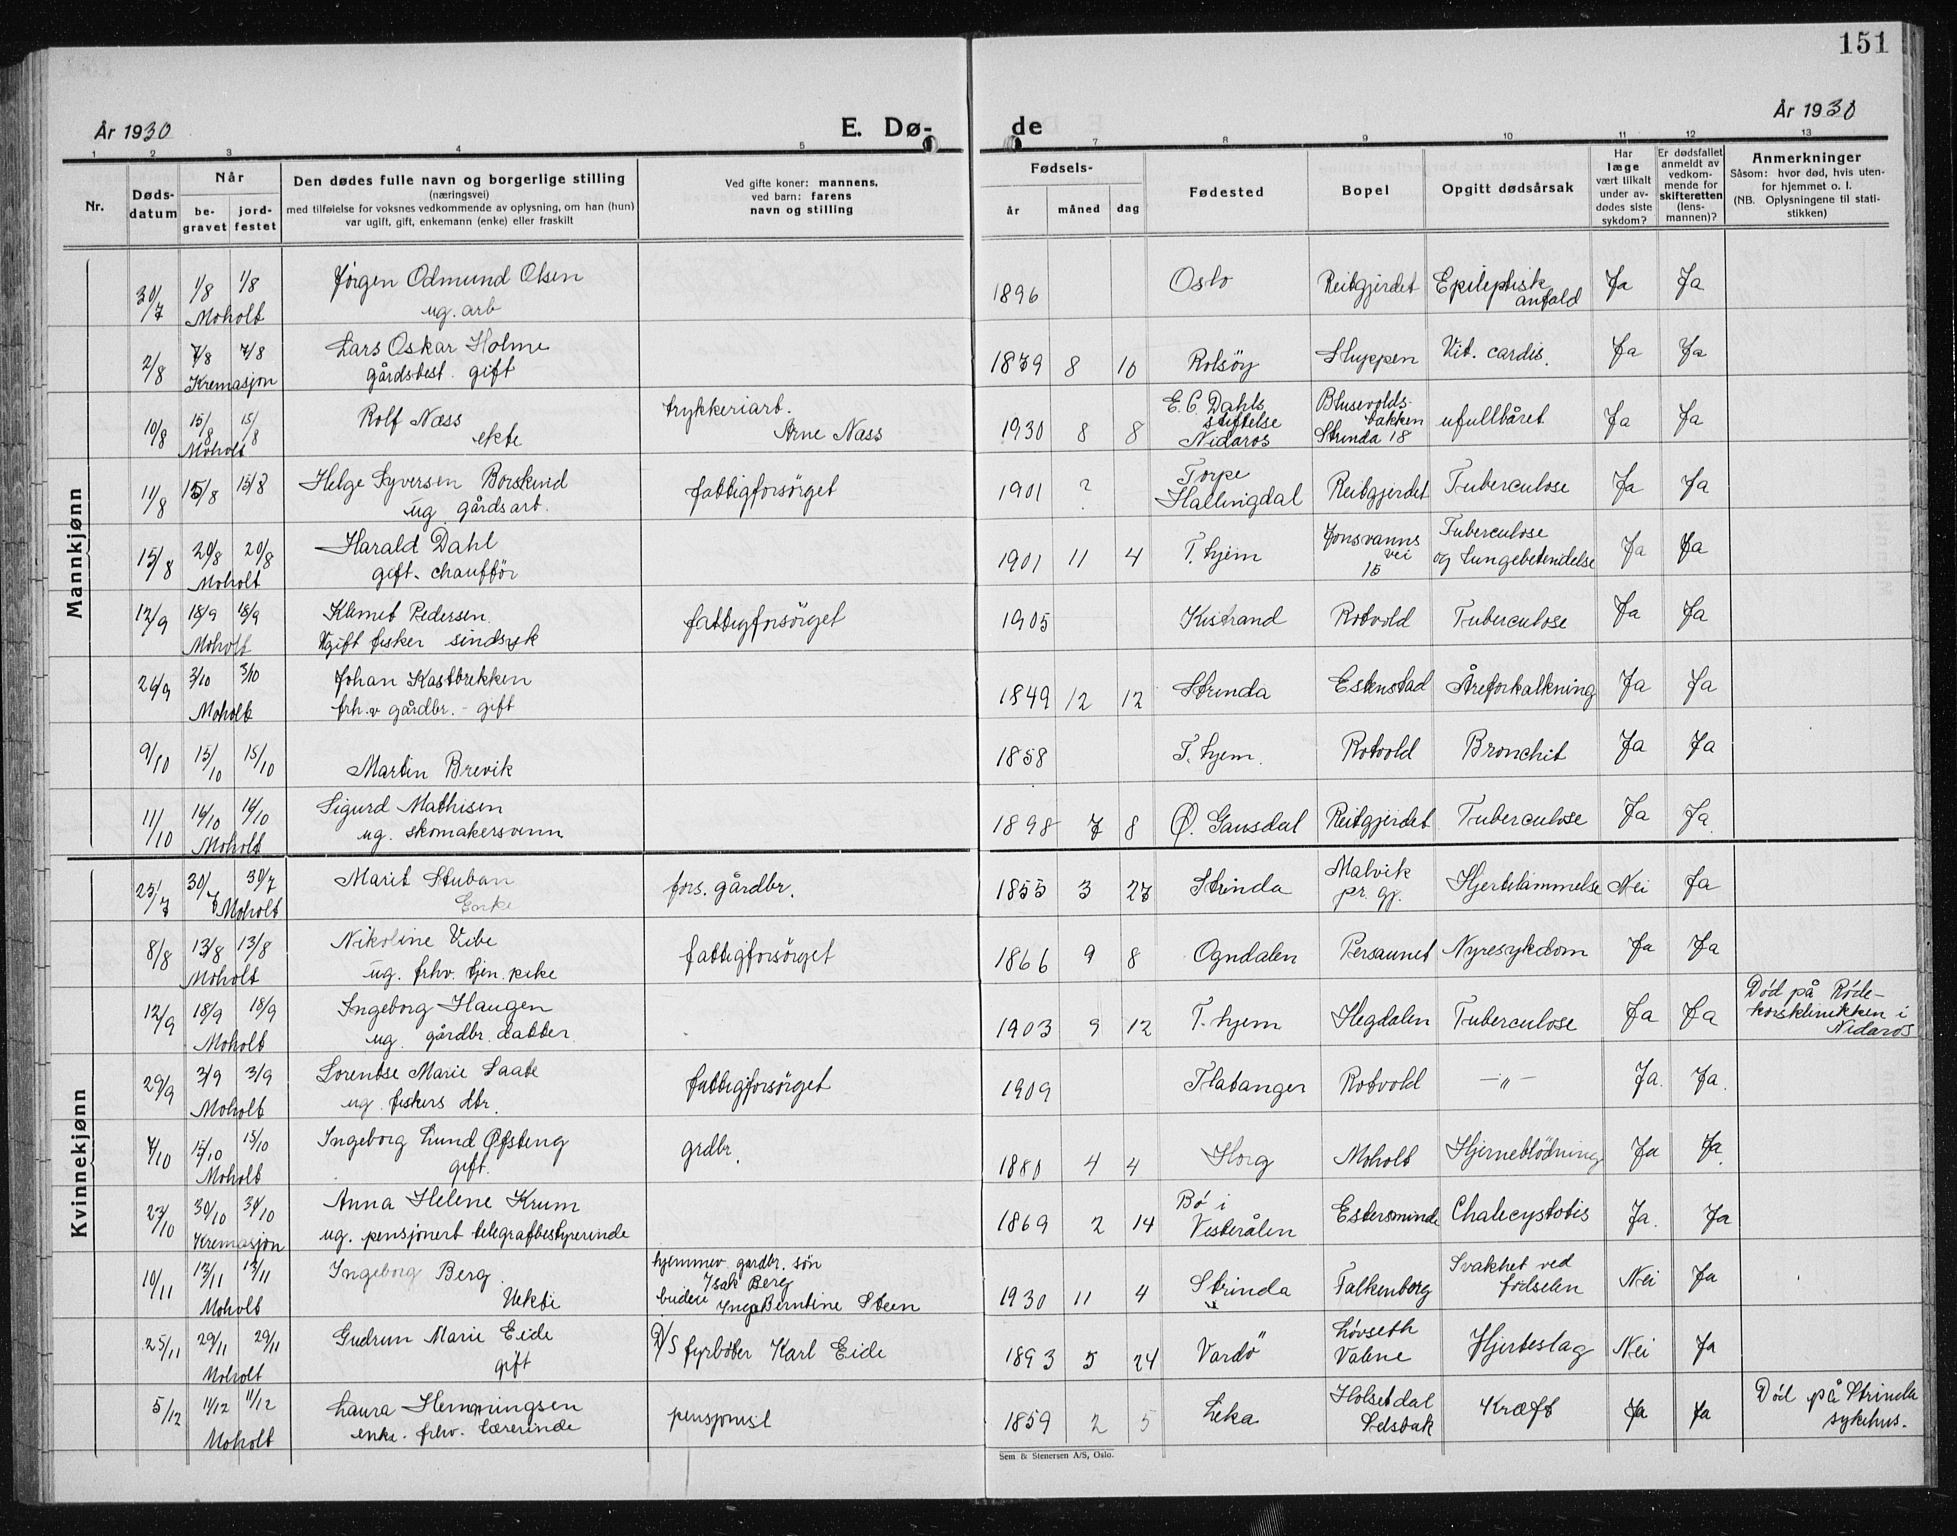 151
År 1930
E. Dø-
de
År 1930
1 2 3 4 5 7 8 9 10 11 12 13
Nr.
Døds-
datum
Når
be-
gravet
jord-
festet
Den dødes fulle navn og borgerlige stilling
(næringsvei)
med tilføielse for voksnes vedkommende av oplysning, om han (hun)
var ugift, gift, enkemann (enke) eller fraskilt
Ved gifte koner: mannens,
ved barn: farens
navn og stilling
Fødsels-
år måned dag
Fødested
Bopel
Opgitt dødsårsak
Har
læge
vært tilkalt
under av-
dødes siste
sykdom?
Er dødsfallet
anmeldt av
vedkom-
mende for
skifteretten
(lens-
mannen)?
Anmerkninger
Såsom: hvor død, hvis uten-
for hjemmet o. l.
(NB. Oplysningene til stati-
stikken)
Mannkjønn
30/7 1/8 1/8 Jørgen Odmund Olsen 1896 Oslo Reitgjerdet Epileptisk Ja Ja
Moholt ug. arb anfald
2/8 7/8 7/8 Lars Oskar Holme 1879 8 10 Rolsöy Sluppen Vit. cardis. Ja Ja
Kremasjon gårdsbest. gift
10/8 15/8 15/8 Rolf Næss trykkeriarb. 1930 8 8 E. C. Dahls Blusevolds- ufullbåret Ja Ja
Moholt ekte Arne Næss stiftelse bakken
Nidaros Strinda 18
11/8 15/8 15/8 Helge Syversen Borskind fattigforsörget 1901 ? Torpe Reitgjerdet Tuberculose Ja Ja
ug gårdsarb. Hallingdal
15/8 20/8 20/8 Harald Dahl 1901 11 4 T.hjem Jonsvanns Tuberculose Ja Ja
Moholt gift. chaufför vei og Lungebetendelse
15
12/9 18/9 18/9 Klemet Pedersen fattigforsörget 1905 Kistrand Rotvold Tuberculose Ja Ja
Moholt Ugift fisker sindsyk
26/9 3/10 3/10 Johan Kastbrekken 1849 12 12 Strinda Estenstad Åreforkalkning Ja Ja
Moholt frh.v gårdbr. - gift
9/10 15/10 15/10 Martin Brevik 1858 T.hjem. Rotvold Bronchit Ja Ja
11/10 14/10 14/10 Sigurd Mathisen 1898 7 8 Ø. Gausdal Reitgjerdet Tuberculose Ja Ja
Moholt ug. skomakersvenn
Kvinnekjønn
25/7 30/7 30/7 Marit Stuban fors. gårdbr. 1855 3 27 Strinda Malvik Hjertelammelse Nei Ja
Moholt Enke pr. gj.
8/8 13/8 13/8 Nikoline Vibe fattigforsörget 1866 9 8 Ogndalen Persaunet Nyresykdom Ja Ja
Moholt ug. frhv. tjen. pike
12/9 18/9 18/9 Ingeborg Haugen 1903 9 12 T.hjem Hegdalen Tuberculose Ja Ja Död på Röde-
Moholt ug. gårdbr. datter korsklinikken i
Nidaros
29/9 3/9 3/9 Lorentse Marie Saate fattigforsörget 1909 Flatanger Rotvold —"— Ja. Ja.
Moholt ug. fiskers dtr.
7/10 15/10 15/10 Ingeborg Lund Øfsteng grdbr. 1880 4 4 Horg Moholt Hjerneblödning Ja Ja
Moholt gift.
23/10 30/10 30/10 Anna Helene Krum 1869 2 14 Bö i Estersminde Chalecystotis Ja. Ja
Kremasjon ug. pensjonert telegrafbestyrerinde Vesterålen
10/11 13/11 13/11 Ingeborg Berg hjemmev. gardbr. sön 1930 11 4 Strinda Falkenborg Svakhet ved Nei Ja
Moholt Uekte Isak Berg fødselen
budeie Inga Berntine Steen
25/11 29/11 29/11 Gudrun Marie Eide D/S fyrböter Karl Eide 1893 5 24 Vardö Lövseth Hjerteslag Nei Ja
Moholt gift Valene
5/12 11/12 11/12 Laura Hemmingsen pensjonist 1859 2 5 Leka Holsetdal Kræft Ja Ja Død på Strinda
Moholt enke. frhv. Lærerinde Selsbak sykehus.
Sem & Stenersen A/S, Oslo.